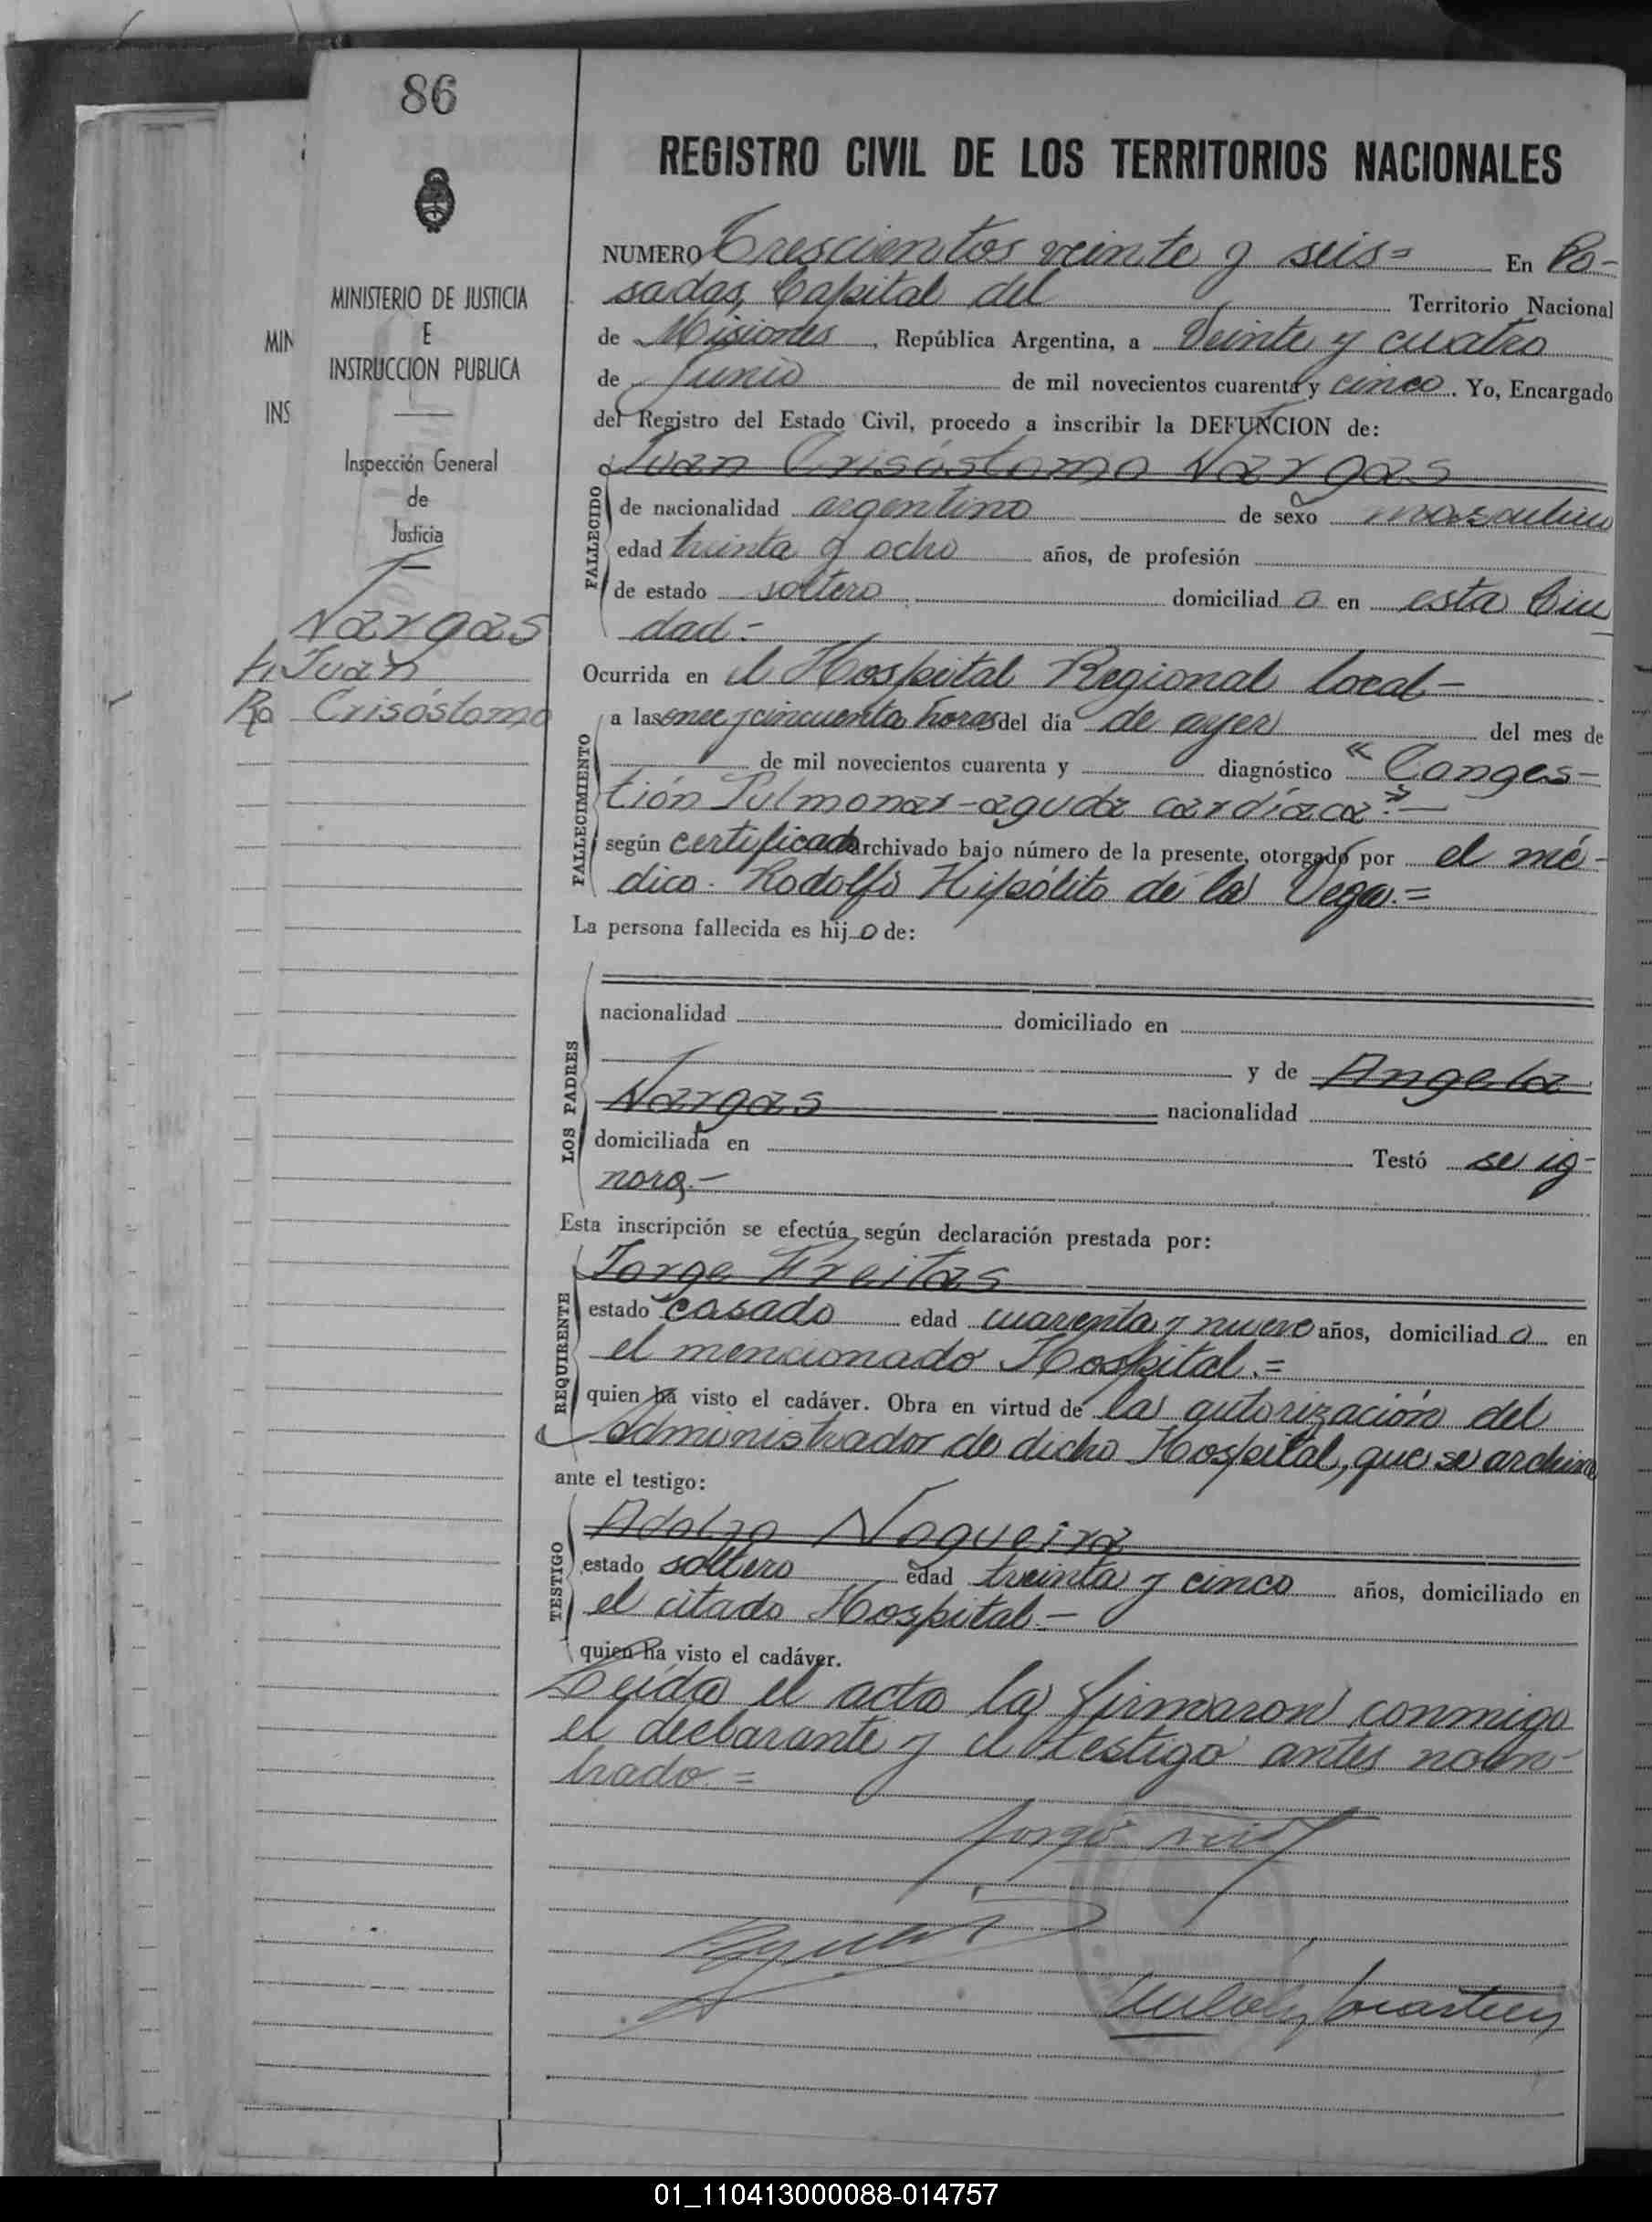 86
REGISTRO CIVIL DE LOS TERRITORIOS NACIONALES
MINISTERIO DE JUSTICIA
E
INSTRUCCION PUBLICA
Inspección General
de
Justicia
Vargas
Juan
Crisóstomo
MIN
INS
NUMERO Trescientos veinte y seis= En Po-
sadas, Capital del Territorio Nacional
de Misiones, República Argentina, a veinte y cuatro
de Junio de mil novecientos cuarenta y cinco. Yo, Encargado
del Registro del Estado Civil, procedo a inscribir la DEFUNCION de:
Juan Crisóstomo Vargas
FALLECIDO
de nacionalidad argentino de sexo masculino
edad treinta y ocho años, de profesión
de estado soltero domiciliad o en esta Ciu
dad.-
Ocurrida en el Hospital Regional local-
FALLECIMIENTO
a las once y cincuenta horas del día de ayer del mes de
de mil novecientos cuarenta y diagnóstico "Conges-
tión Pulmonar-aguda cardíaca".-
según certificado archivado bajo número de la presente, otorgado por el mé-
dico. Rodolfo Hipólito de la Vega.=
La persona fallecida es hij o de:
LOS PADRES
nacionalidad domiciliado en
y de Angela
Vargas nacionalidad
domiciliada en Testó se ig-
nora.-
Esta inscripción se efectúa según declaración prestada por:
REQUIRENTE
Jorge Freitas
estado casado edad cuarenta y nueve años, domiciliad o en
el mencionado Hospital.=
quien ha visto el cadáver. Obra en virtud de la autorización del
Administrador de dicho Hospital, que se archiva
ante el testigo:
TESTIGO
Adolfo Nogueira
estado soltero edad treinta y cinco años, domiciliado en
el citado Hospital-
quien ha visto el cadáver.
Leída el acta la firmaron conmigo
el declarante y el testigo antes nom-
brado=
01_110413000088-014757